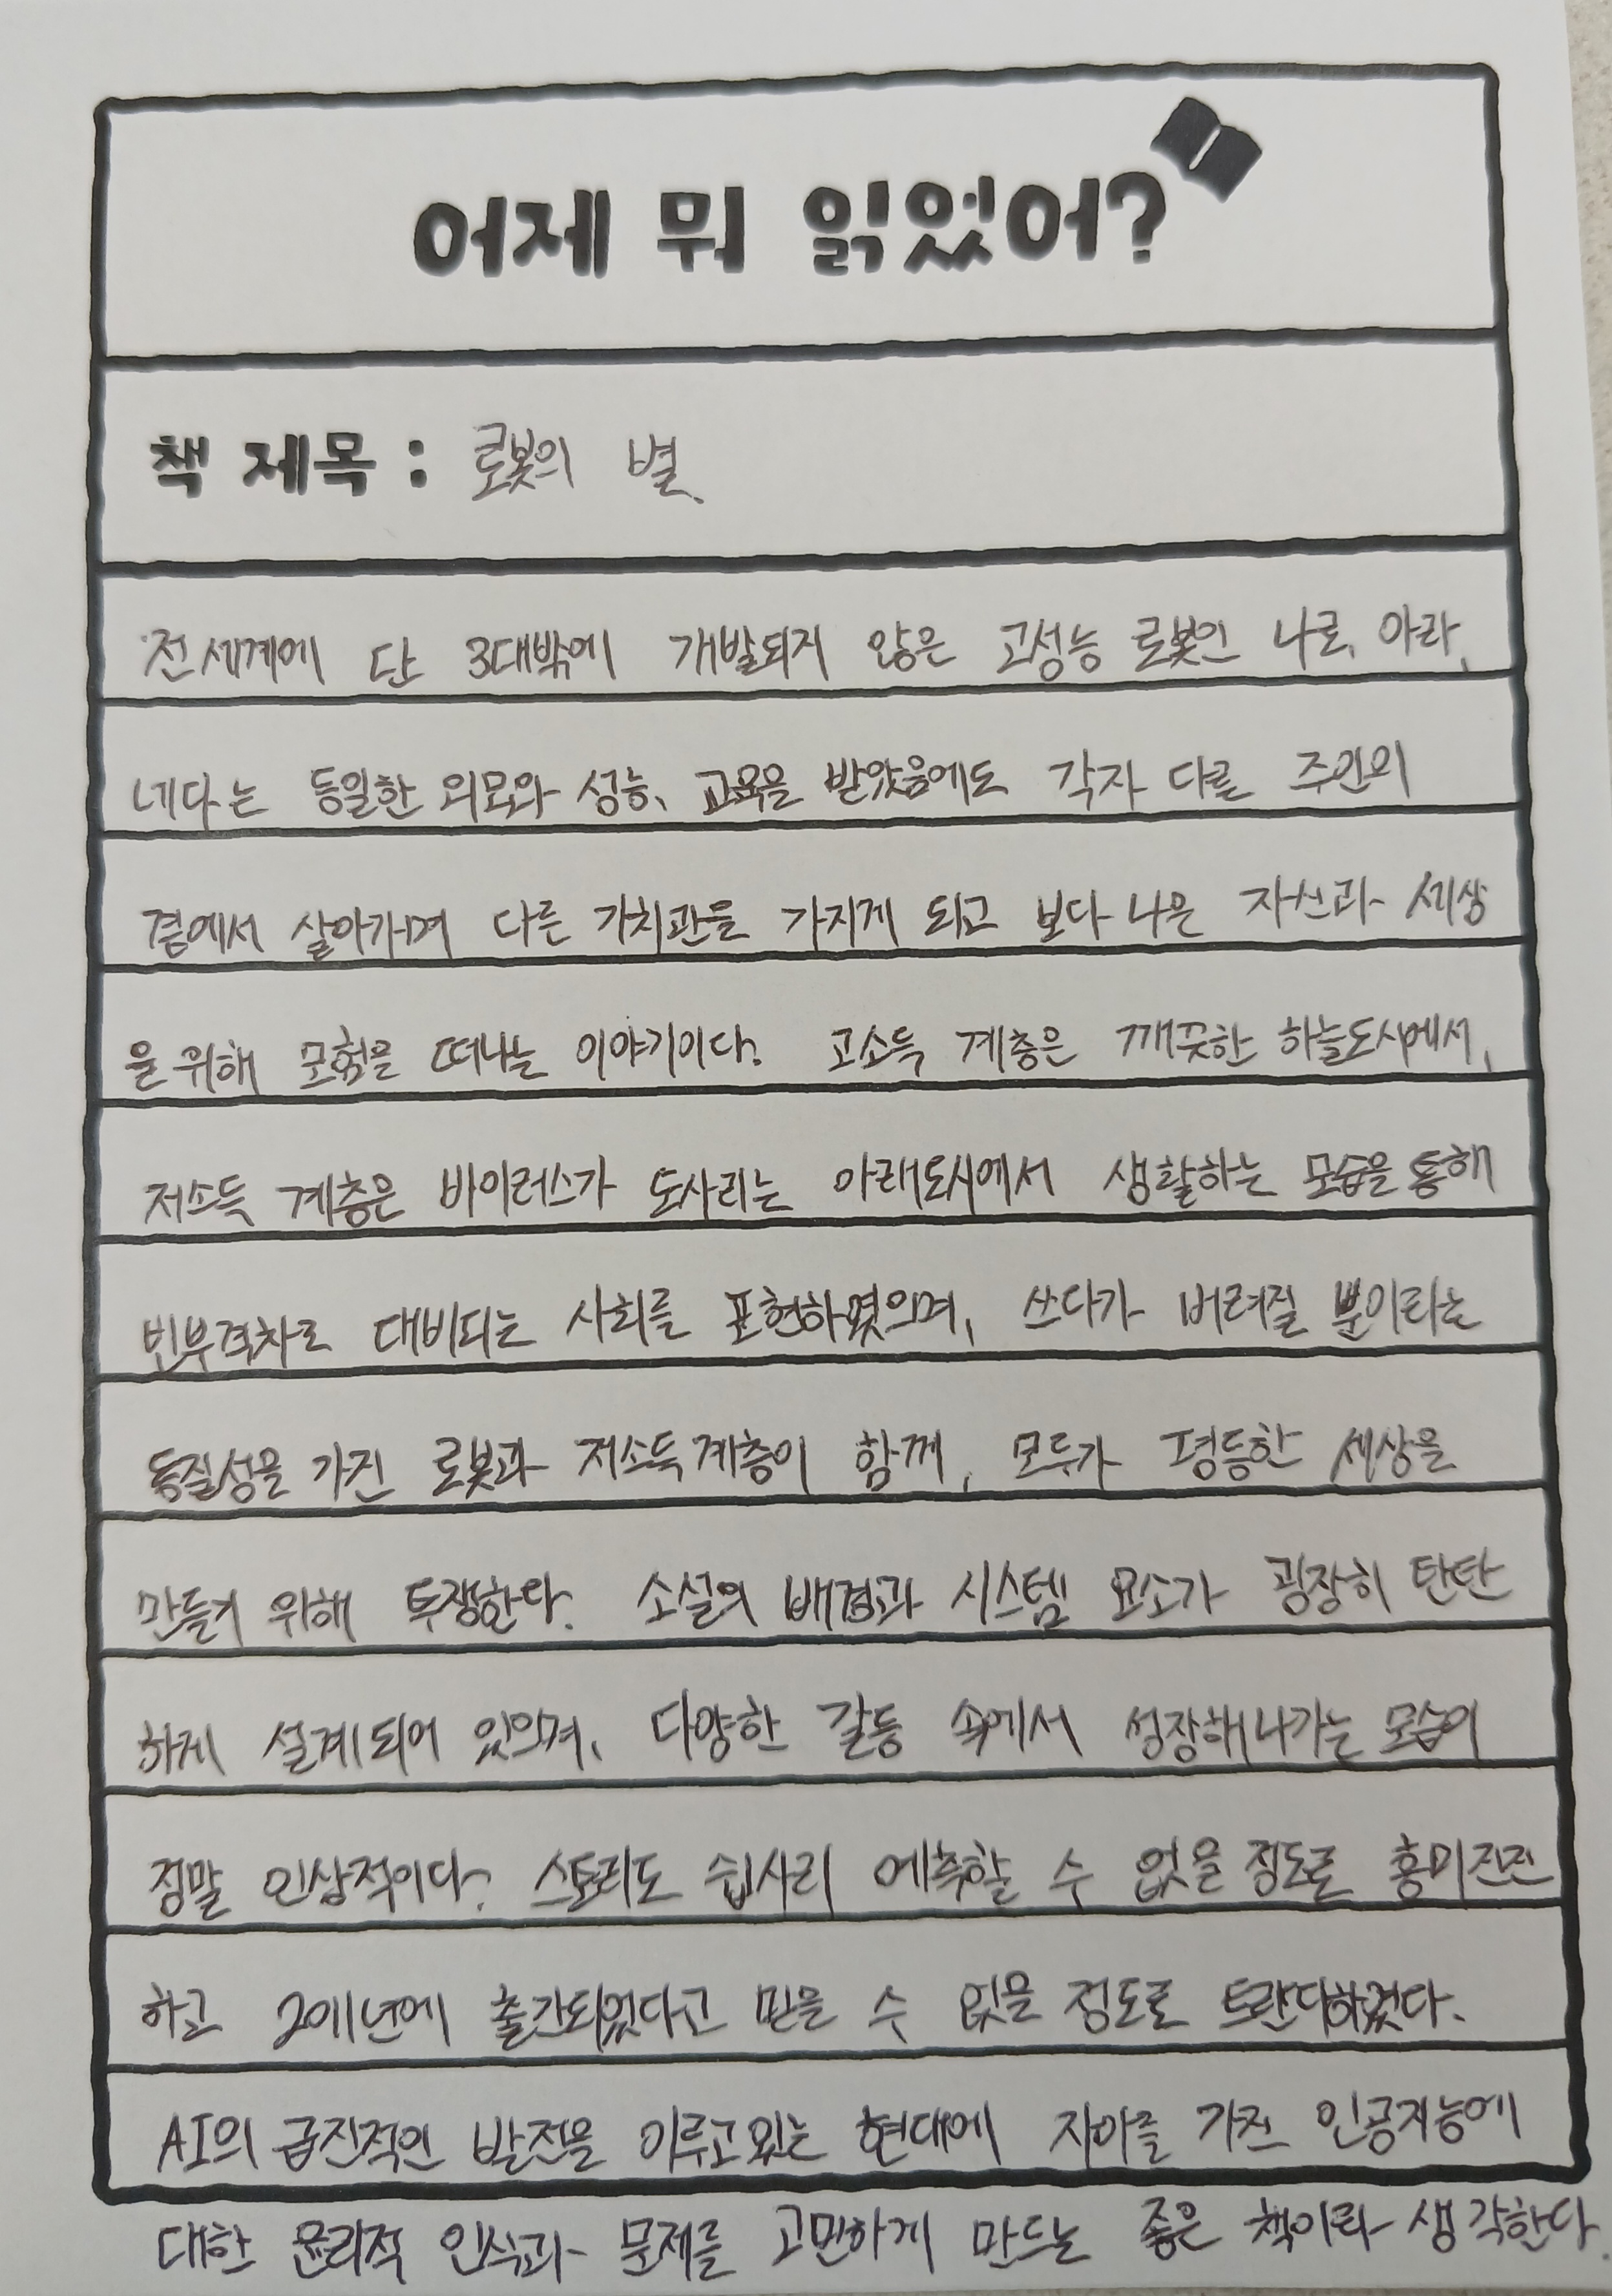 어제 뭐 읽었어?
책 제목 : 로봇의 별
전 세계에 단 3대밖에 개발되지 않은 고성능 로봇인 나로, 아라,
네다는 동일한 외모와 성능, 교육을 받았음에도 각자 다른 주인의
곁에서 살아가며 다른 가치관을 가지게 되고 보다 나은 자신과 세상
을 위해 모험을 떠나는 이야기이다. 고소득 계층은 깨끗한 하늘도시에서,
저소득 계층은 바이러스가 도사리는 아래도시에서 생활하는 모습을 통해
빈부격차로 대비되는 사회를 표현하였으며, 쓰다가 버려질 뿐이라는
동질성을 가진 로봇과 저소득 계층이 함께, 모두가 평등한 세상을
만들기 위해 투쟁한다. 소설의 배경과 시스템 요소가 굉장히 탄탄
하게 설계되어 있으며, 다양한 갈등 속에서 성장해나가는 모습이
정말 인상적이다. 스토리도 쉽사리 예측할 수 없을 정도로 흥미진진
하고 2011년에 출간되었다고 믿을 수 없을 정도로 트랜디하였다.
AI의 급진적인 발전을 이루고 있는 현대에 자아를 가진 인공지능에
대한 윤리적 인식과 문제를 고민하게 만드는 좋은 책이라 생각한다.